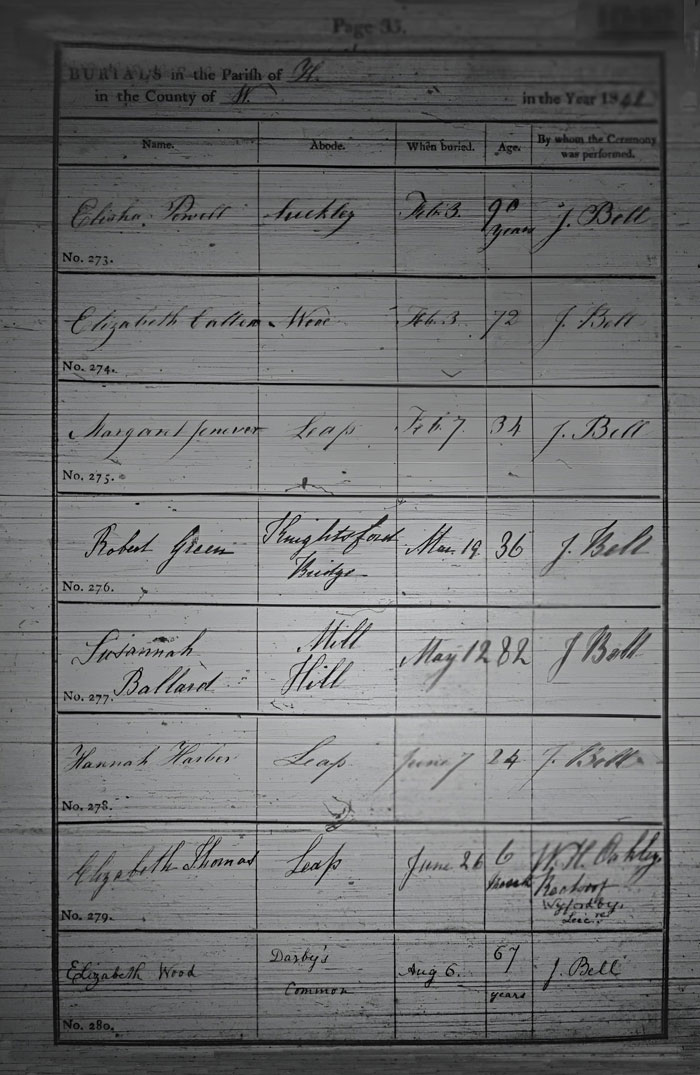 Page 35.
BURIALS in the Parish of H.
in the County of W. in the Year 18
Name. Abode. When buried. Age. By whom the Ceremony was performed.
Elisha Powell Suckley Feb. 3. 90 years J. Bell
No. 273.
Elizabeth Wood Feb. 3 72 J. Bell
No. 274.
Margaret Jenever Leap Feb. 7 34 J. Bell
No. 275.
Robert Green Knightsford Bridge Mar. 19 36 J. Bell
No. 276.
Susannah Ballard Mill Hill May 12 82 J Bell
No. 277.
Hannah Harber Leap June 7 24 J. Bell
No. 278.
Elizabeth Thomas Leap June 26 6 W. H. Oakley
Rector of
Wyfordby.
Leic.re
No. 279.
Elizabeth Wood Darby's Common Aug 6. 67 years J. Bell
No. 280.